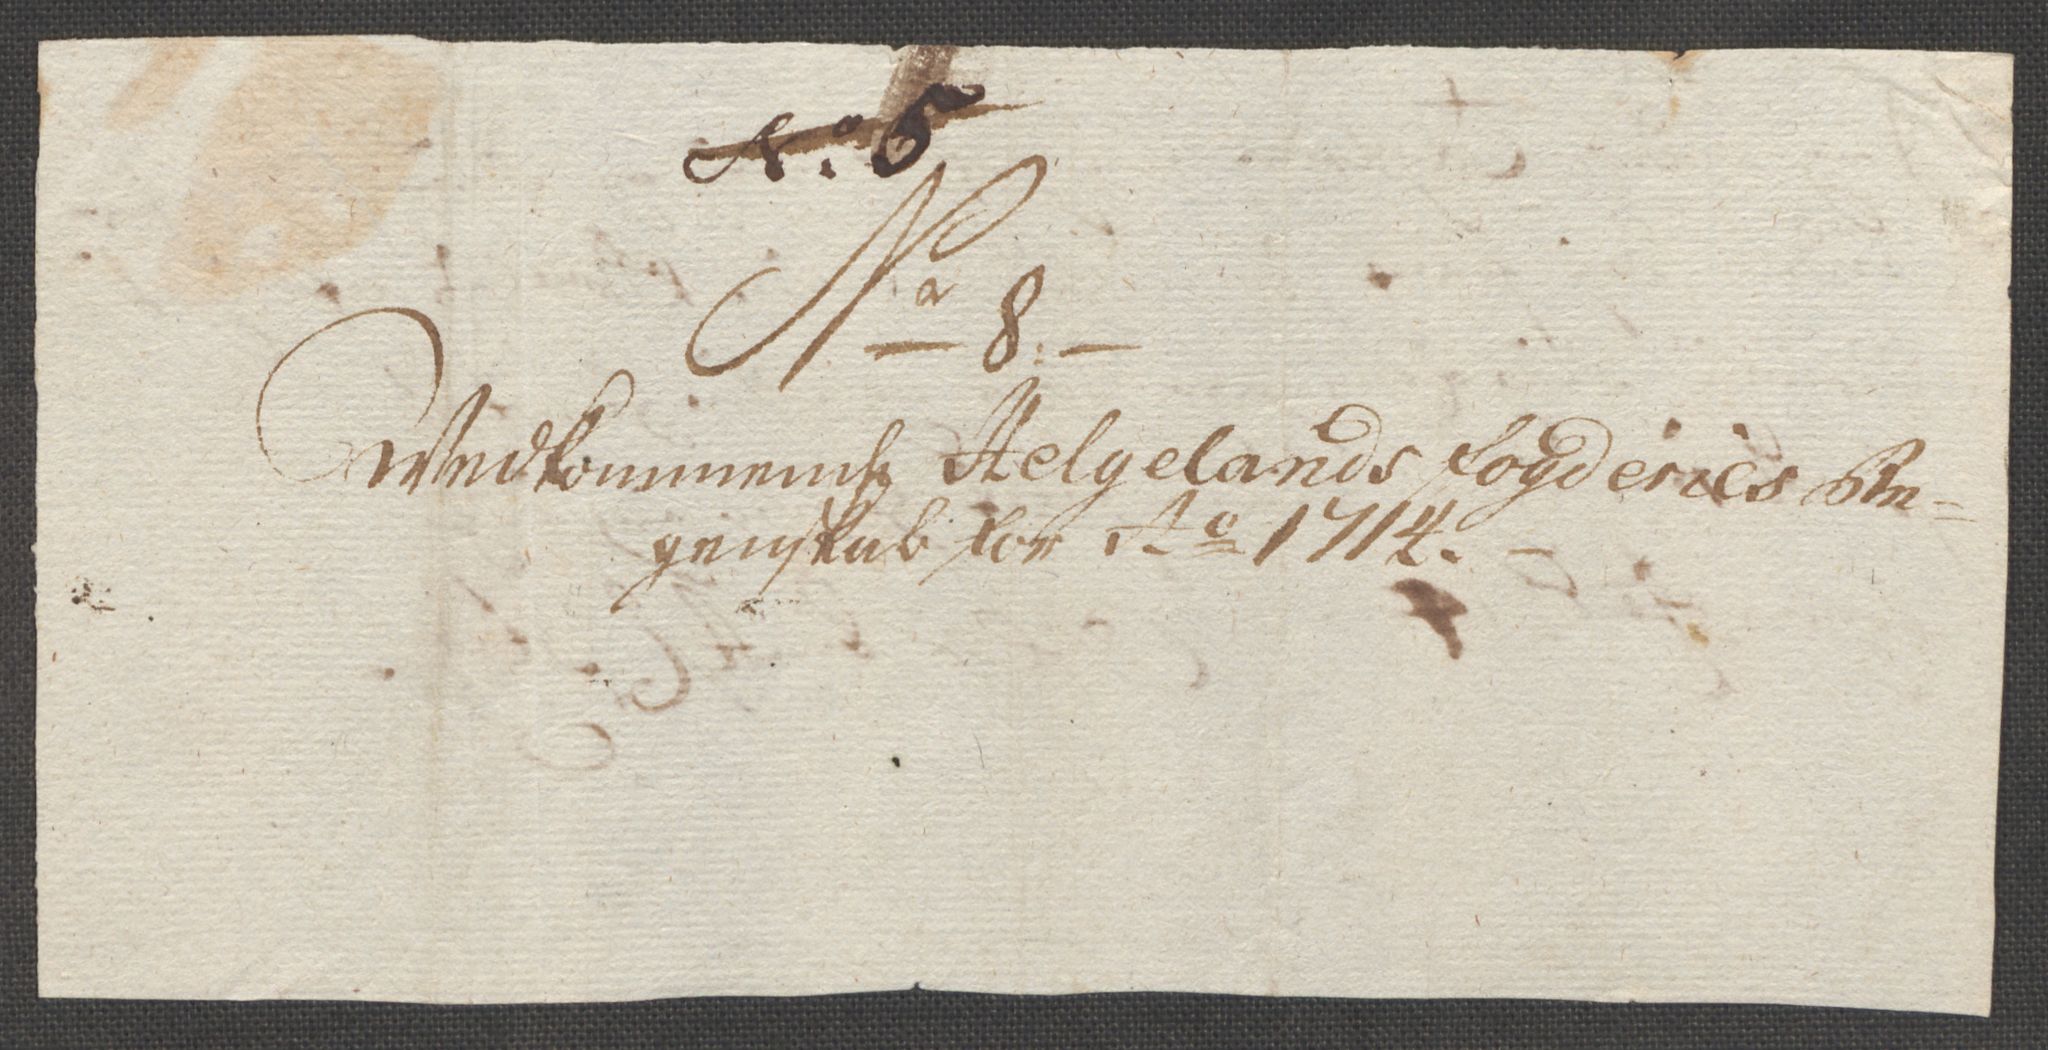 No: 6
No 8:
Wedkommende Helgelands fogderies Re-
genskab for Ao 1714.